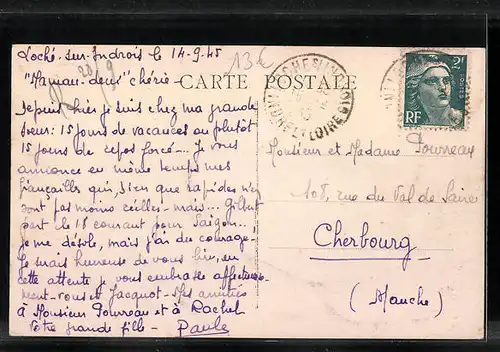 Loché-sur-Indrois le 14-9-45
13€
20/9
"Maman-deux" chérie-
CARTE POSTALE
Depuis hier je suis chez ma grande
soeur: 15 jours de vacances ou plutôt
15 jours de repos forcé... Je vous
annonce en même temps mes
fiançailles qui, bien que rapides n'en
sont pas moins réelles- mais... Gilbert
part le 18 courant pour Saïgon...
je me désole, mais j'ai du courage-
Je suis heureuse de vous lire, en
cette attente je vous embrasse affectueuse-
ment-vous et Jacquot- Mes amitiés
à Monsieur Pourreau et à Rachel
Votre grande fille- Paule
INDRE ET LOIRE
2F
RF
Monsieur et Madame Pourreau
108, rue du Val de Saire
Cherbourg
(Manche)